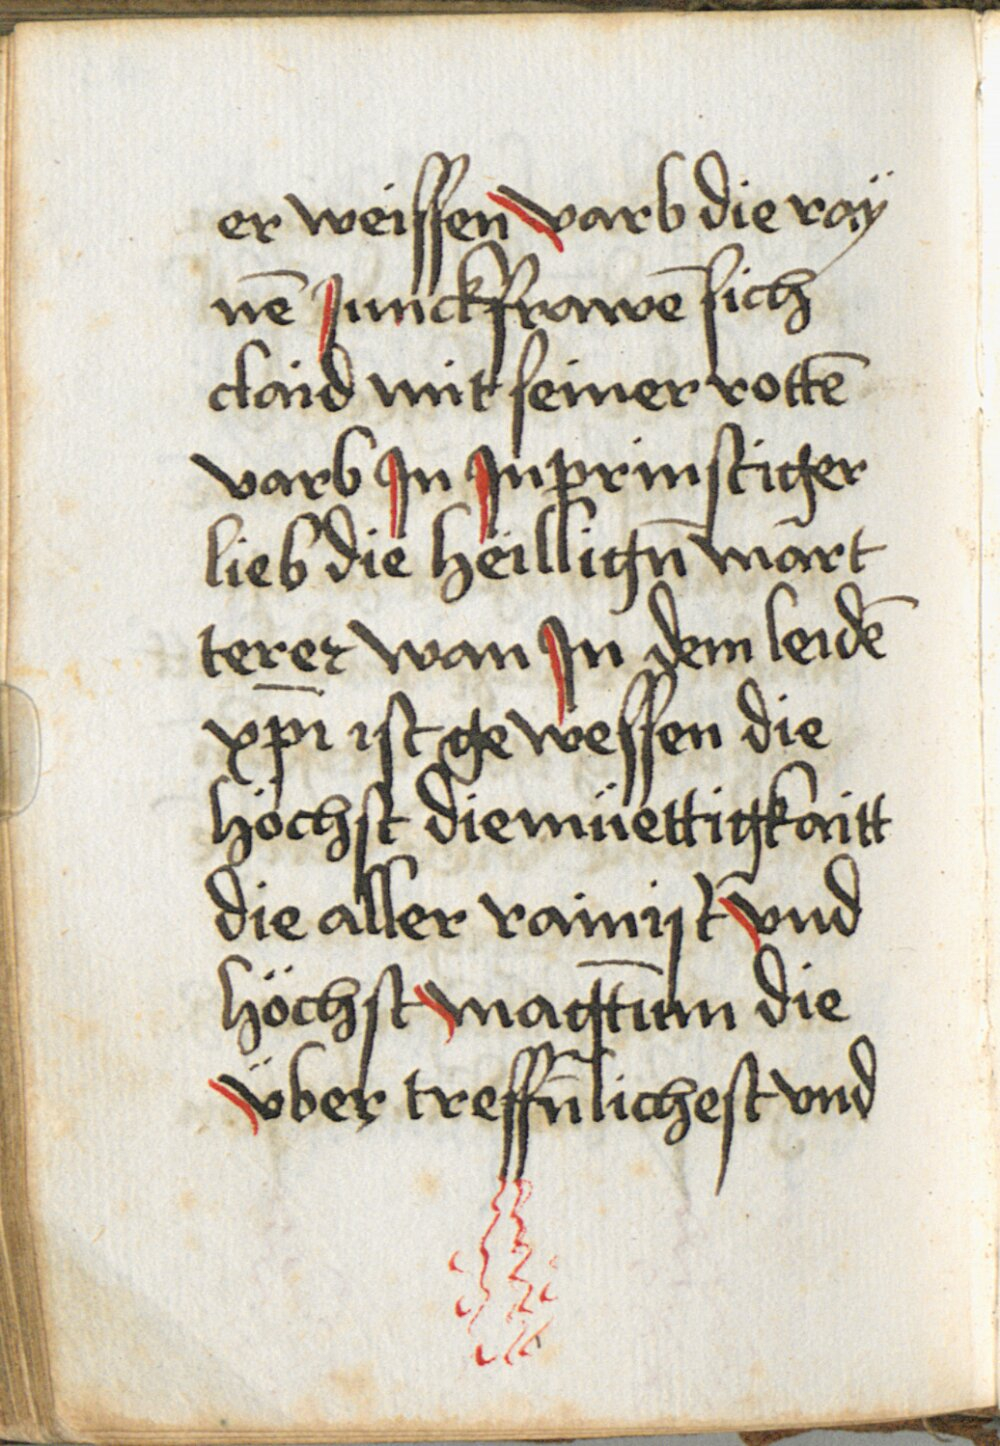 er weissen varb die raÿ
nē Junckfrawē sich
claid mit seiner rottē
varb Jn Jnprinstiger
lieb die heillign̄ mart
terer wan Jn dem leidē
xp̄i ist gewessen die
höchst diemüettigkaitt
die aller rainist vnd
höchst magtūm die
über treffn̄lichest vnd